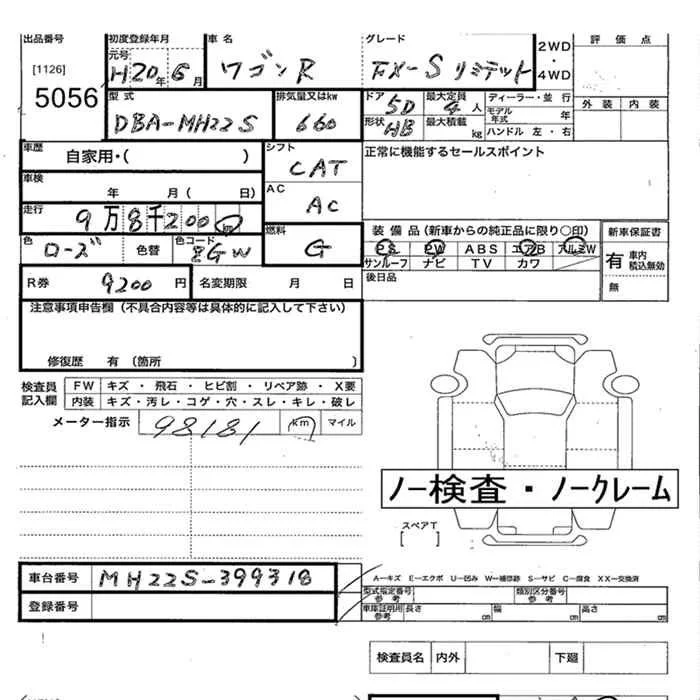 出品番号 初度登録年月 車名 グレード 2WD・4WD 評価点
[1126] 元号
5056 H20年6月 ワゴンR FX-Sリミテット
型式 排気量又はkw ドア 5D 最大定員 4人 ディーラー・並行 外装 内装
DBA-MH22S 660 形状 HB 最大積載 kg モデル年式 年
ハンドル 左・右
車歴 自家用・( ) シフト CAT 正常に機能するセールスポイント
車検 年 月( 日) AC AC
走行 9万8千200km 燃料 G 装備品(新車からの純正品に限り○印) 新車保証書
色 ローズ 色替 色コード PS PW ABS エアB アルミW 有 車内積込無効
サンルーフ ナビ TV カワ 無
R券 9200円 名変期限 月 日 後日品
注意事項申告欄(不具合内容等は具体的に記入して下さい)
修復歴 有(箇所 )
検査員記入欄 FW キズ・飛石・ヒビ割・リペア跡・X要
内装 キズ・汚レ・コゲ・穴・スレ・キレ・破レ
メーター指示 98181 km マイル
ノー検査・ノークレーム
スペアT
[ ]
車台番号 MH22S-399318
A-キズ E-エクボ U-凹み W-補修跡 S-サビ C-腐食 XX-交換済
登録番号 型式指定番号 参考 類別区分番号 参考
車庫証明用 参考 長さ cm 幅 cm 高さ cm
検査員名 内外 下廻